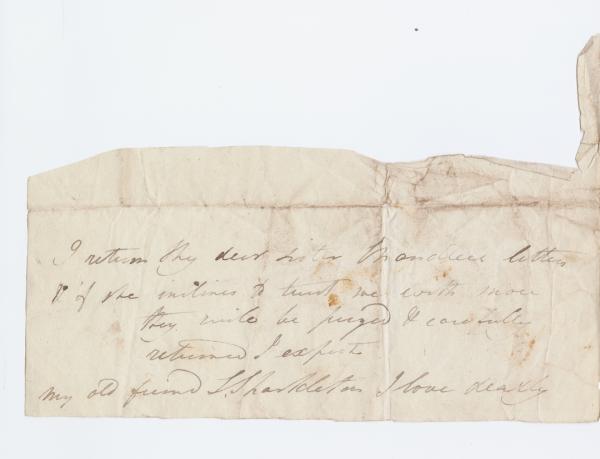 I return thy dear sister letters
& if she inclines to trust me with more
they will be prized & carefully
returned I expect
my old friend S Shackleton I love dearly